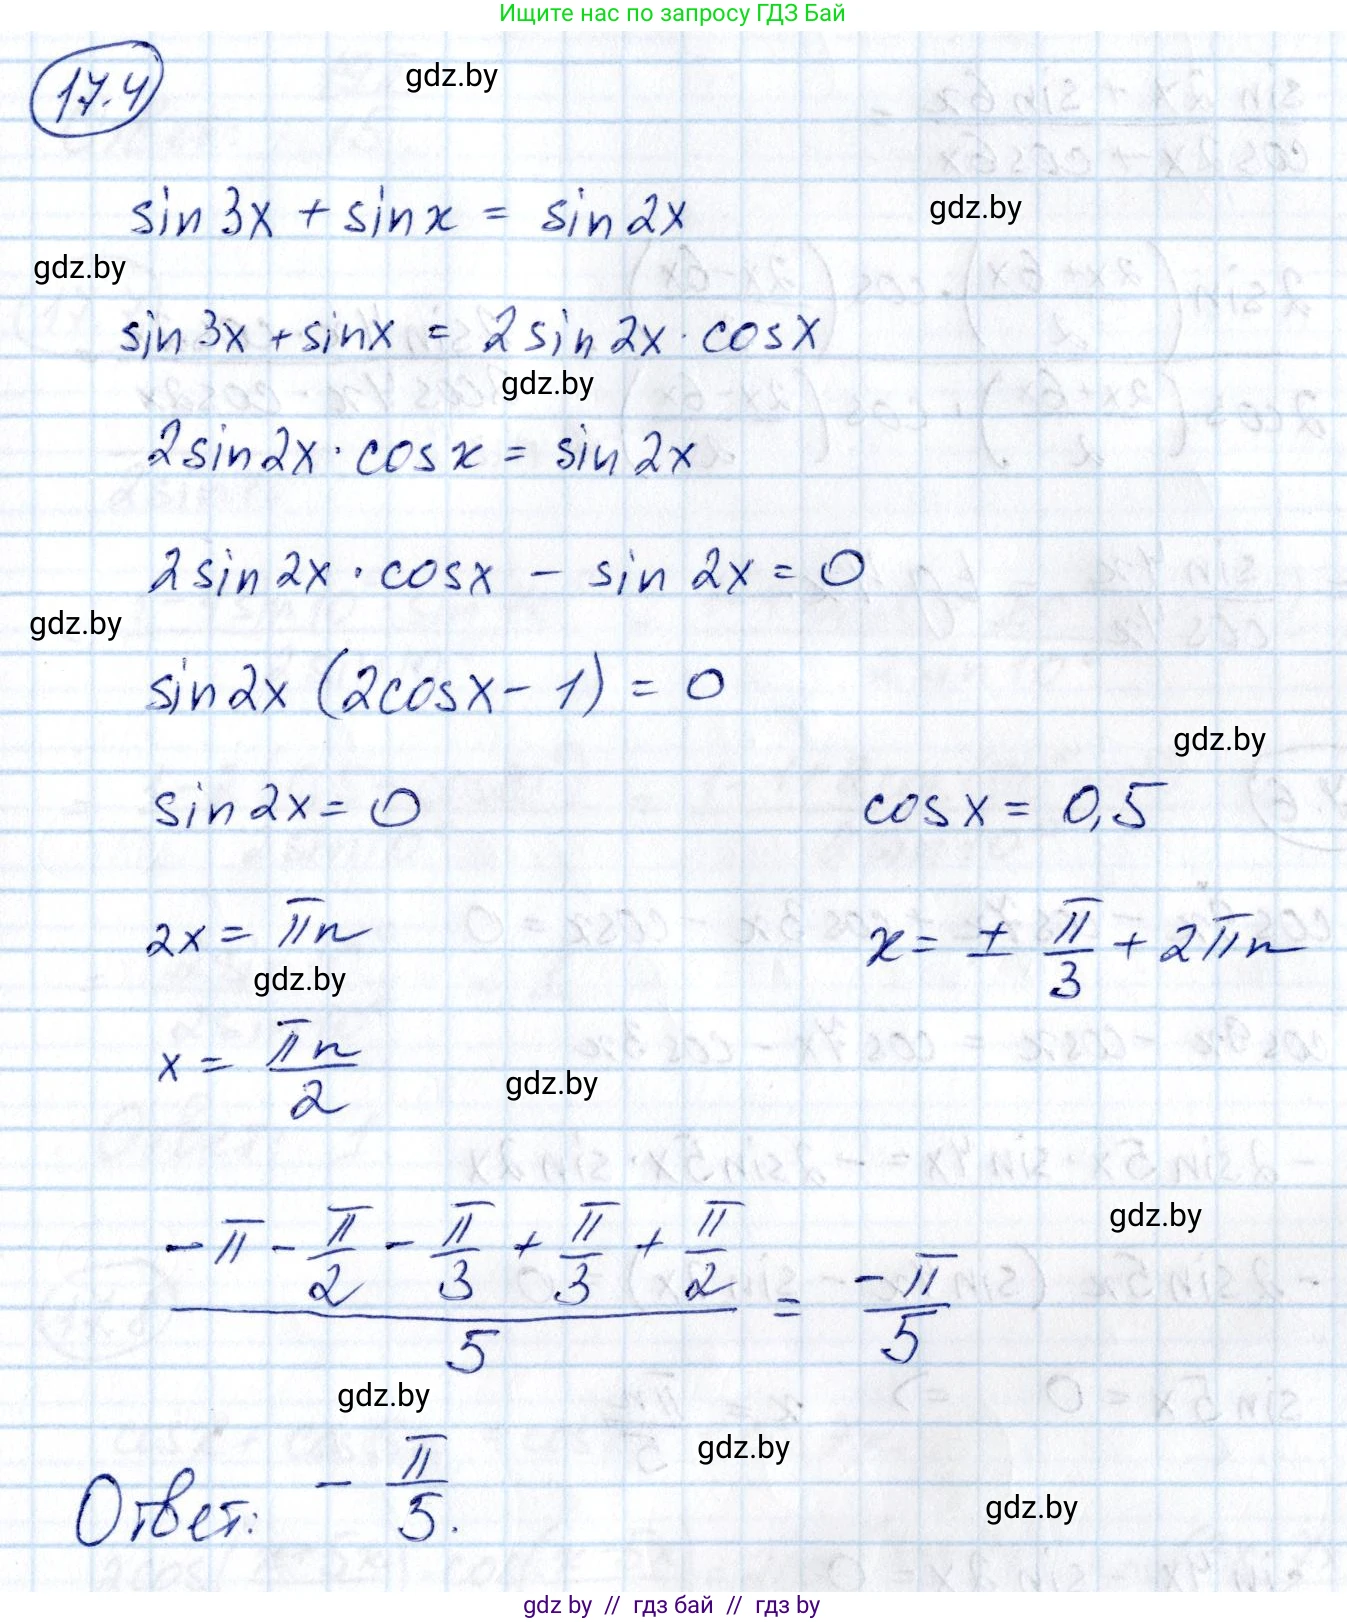 Ищите нас по запросу ГДЗ Бай
17.4
gdz.by
sin3x + sinx = sin2x
gdz.by
gdz.by
sin3x + sinx = 2sin2x · cosx
gdz.by
2sin2x · cosx = sin2x
2sin2x · cosx - sin2x = 0
gdz.by
sin2x (2cosx - 1) = 0
gdz.by
sin2x = 0 cosx = 0,5
2x = πn x = ± π/3 + 2πn
gdz.by
x = πn/2
gdz.by
gdz.by
(-π - π/2 - π/3 + π/3 + π/2)/5 = -π/5
gdz.by
gdz.by
Ответ: - π/5.
gdz.by
gdz.by // гдз бай // гдз by